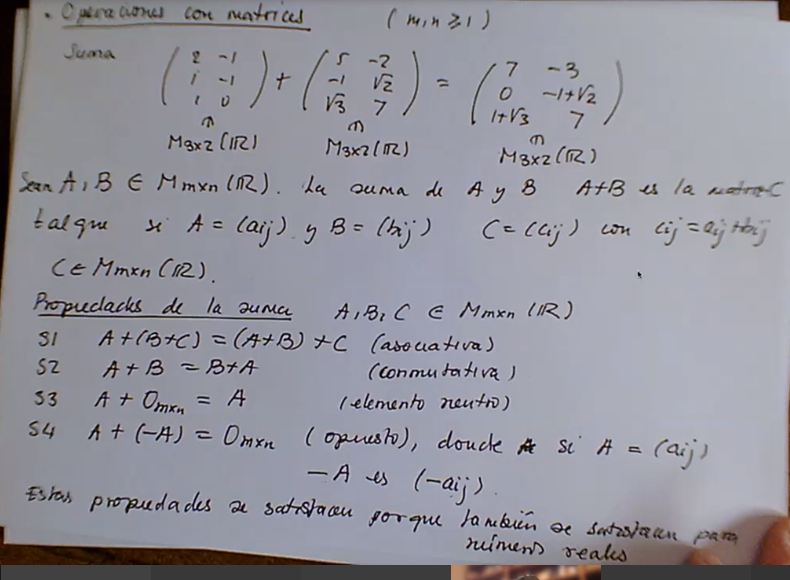 . Operaciones con matrices (m,n ≥ 1)
Suma
( 2 -1 ; 1 -1 ; 1 0 ) + ( 5 -2 ; -1 √2 ; √3 7 ) = ( 7 -3 ; 0 -1+√2 ; 1+√3 7 )
⇑ ⇑ ⇑
M3x2 (IR) M3x2 (IR) M3x2 (IR)
Sean A, B ∈ Mmxn (IR). La suma de A y B A+B es la matriz C
tal que si A = (aij) y B = (bij) C = (cij) con cij = aij + bij
C ∈ Mmxn (IR).
Propiedades de la suma A, B, C ∈ Mmxn (IR)
S1 A+(B+C) = (A+B)+C (asociativa)
S2 A+B = B+A (conmutativa)
S3 A + Omxn = A (elemento neutro)
S4 A + (-A) = Omxn (opuesto), donde si A = (aij)
-A es (-aij).
Estas propiedades se satisfacen porque también se satisfacen para
números reales